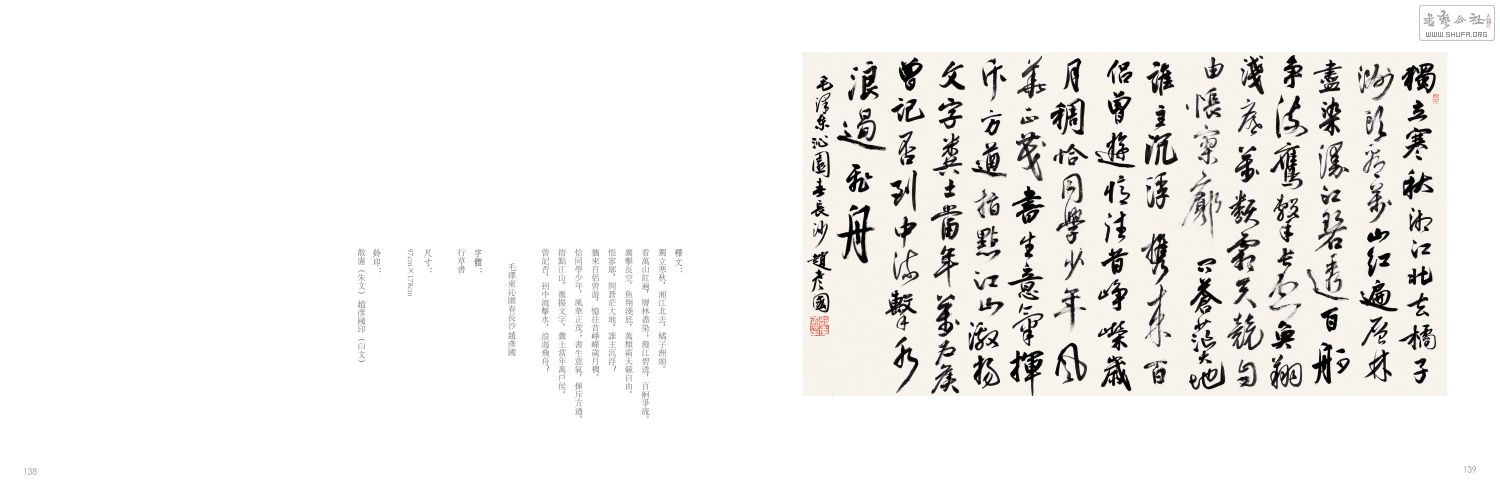 書藝公社
WWW.SHUFA.ORG
獨立寒秋湘江北去橘子
洲頭看萬山紅遍層林
盡染漫江碧透百舸
爭流鷹擊長空魚翔
淺底萬類霜天競自
由悵寥廓問蒼茫大地
誰主沉浮攜來百
侶曾遊憶往昔崢嶸歲
月稠恰同學少年風
華正茂書生意氣揮
斥方遒指點江山激揚
文字糞土當年萬戶侯
曾記否到中流擊水
浪遏飛舟
毛澤東沁園春長沙 趙彥國
釋文：
獨立寒秋，湘江北去，橘子洲頭。
看萬山紅遍，層林盡染；漫江碧透，百舸爭流。
鷹擊長空，魚翔淺底，萬類霜天競自由。
悵寥廓，問蒼茫大地，誰主沉浮？
攜來百侶曾遊，憶往昔崢嶸歲月稠。
恰同學少年，風華正茂；書生意氣，揮斥方遒。
指點江山，激揚文字，糞土當年萬戶侯。
曾記否，到中流擊水，浪遏飛舟？
毛澤東沁園春長沙 趙彥國
字體：
行草書
尺寸：
97cm×178cm
鈐印：
散慮（朱文）趙彥國印（白文）
138
139